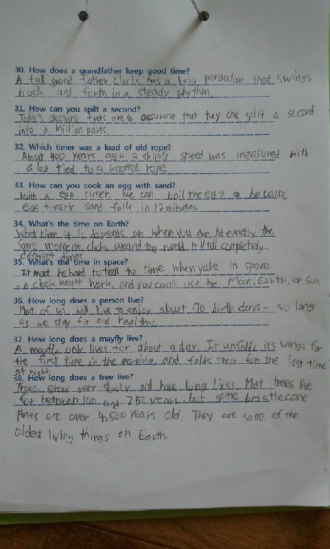 30. How does a grandfather keep good time?
A tall grand father clock has a long pendulum that swings
back and forth in a steady rhythm.
31. How can you spilt a second?
Today's designs that are so accurate that they can split a second
into a million parts.
32. Which timer was a load of old rope?
About 400 years ago a ship's speed was measured with
a log tied to a knotted rope
33. How can you cook an egg with sand?
With a egg timer. We can boil the egg
egg timer's sand falls in 12 minutes
34. What's the time on Earth?
What time is depends on where you are. At exactly the
same moment, clocks around the world will tell completely
different times.
35. What's the time in space?
It must be hard to tell the time when you're in space
A clock won't work, and you can't use the Moon, Earth, or Sun.
36. How long does a person live?
Most of us will live to enjoy about 70 birth days - so long
as we stay fit and healthy.
37. How long does a mayfly live?
A mayfly only lives for about a day. It unfolds its wings for
the first time in the morning, and folds them for the last time
at night.
38. How long does a tree live?
Trees grow very slowly and have long lives. Most trees live
for between 100 and 250 years, but some bristlecone
Pines are over 4,500 years old They are some of the
oldest living things on Earth.